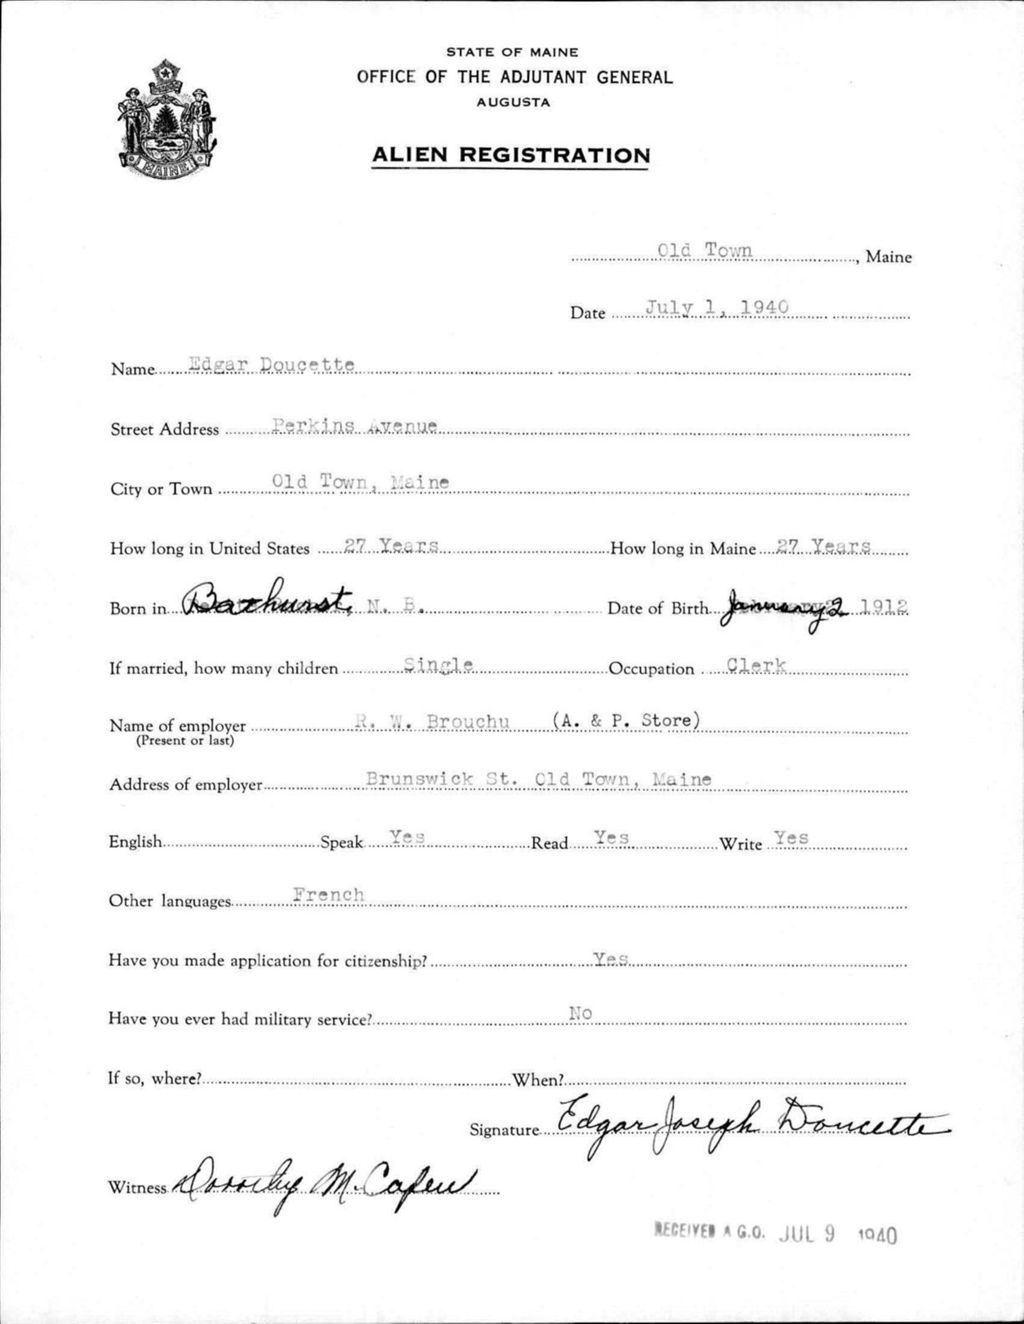 STATE OF MAINE
OFFICE OF THE ADJUTANT GENERAL
AUGUSTA
ALIEN REGISTRATION
MAINE
Old Town, Maine
Date July 1, 1940
Name Edgar Doucette
Street Address Perkins Avenue
City or Town Old Town, Maine
How long in United States 27 Years How long in Maine 27 Years
Born in Bathurst, N. B. Date of Birth January 2 1912
If married, how many children Single Occupation Clerk
Name of employer R. W. Brouchu (A. & P. Store)
(Present or last)
Address of employer Brunswick St. Old Town, Maine
English Speak Yes Read Yes Write Yes
Other languages French
Have you made application for citizenship? Yes
Have you ever had military service? No
If so, where? When?
Signature Edgar Joseph Doucette
Witness Dorothy M. Capen
RECEIVED A.G.O. JUL 9 1940